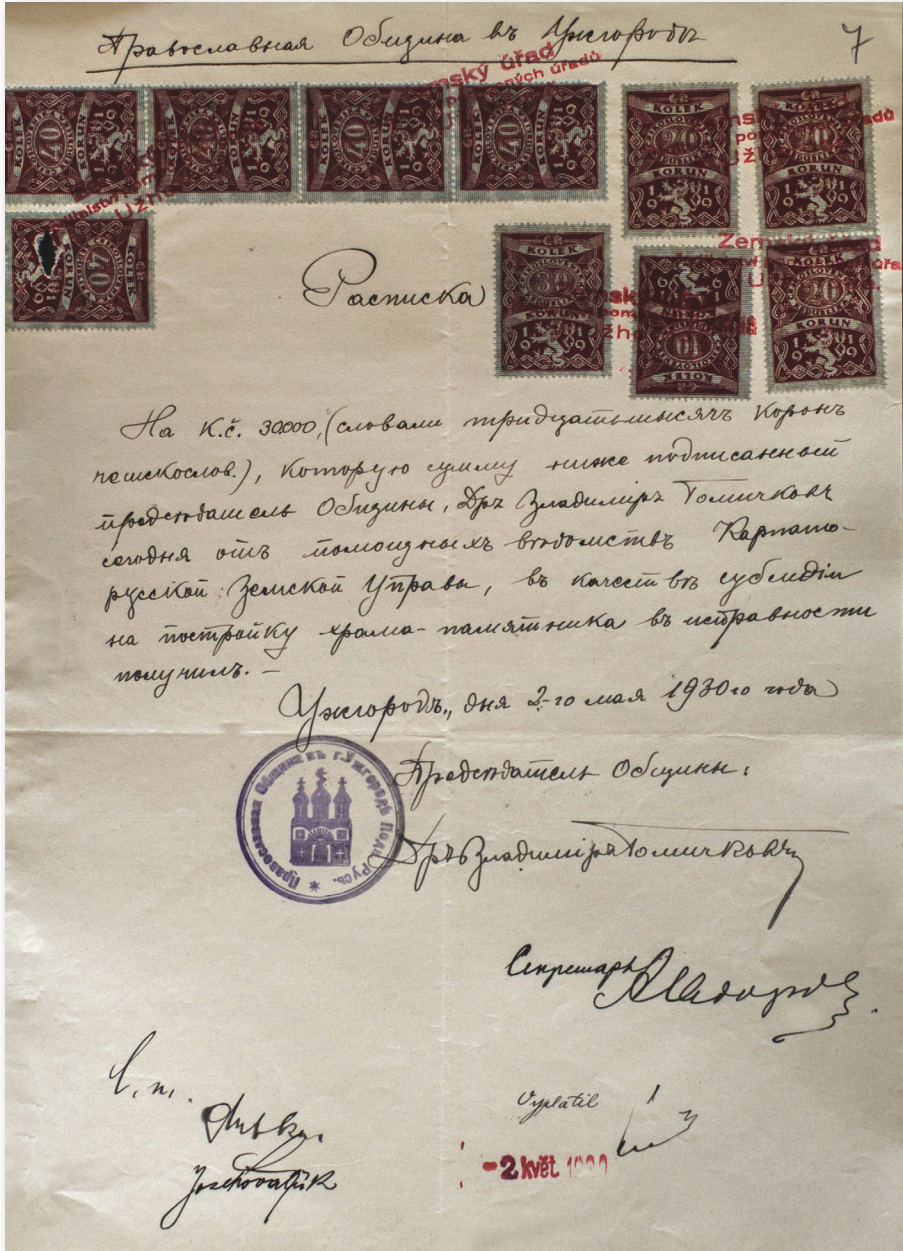 Православная Община въ Ужгородѣ
7
Zemský úřad
KOLEK
40
KORUN
1919
KOLEK
40
KORUN
1919
KOLEK
40
KORUN
1919
KOLEK
40
KORUN
1919
KOLEK
20
KORUN
1919
KOLEK
20
KORUN
1919
KOLEK
40
KORUN
1919
KOLEK
KORUN
1919
KOLEK
10
KORUN
1919
KOLEK
20
KORUN
1919
Zemský úřad
Расписка
На К.č. 30000, (словами тридцатьтысячъ Коронъ
чешкослов.), которую сумму ниже подписанный
предсѣдатель Общины, Дръ Владимiръ Томичковъ
сегодня отъ помощныхъ вѣдомствъ Карпато-
русской Земской Управы, въ качествѣ субсидiи
на постройку храма-памятника въ исправности
получилъ. –
Ужгородъ, дня 2-го мая 1930го года
Предсѣдатель Общины:
Православная Община въ г. Ужгородѣ Подк. Русь.
Дръ Владимiръ Томичковъ
Секретарь
Vyplatil
-2 květ 1930